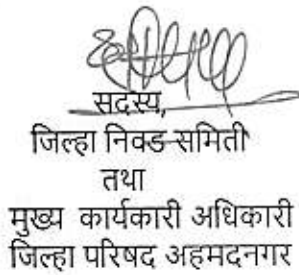 सदस्य,
जिल्हा निवड समिती
तथा
मुख्य कार्यकारी अधिकारी
जिल्हा परिषद अहमदनगर